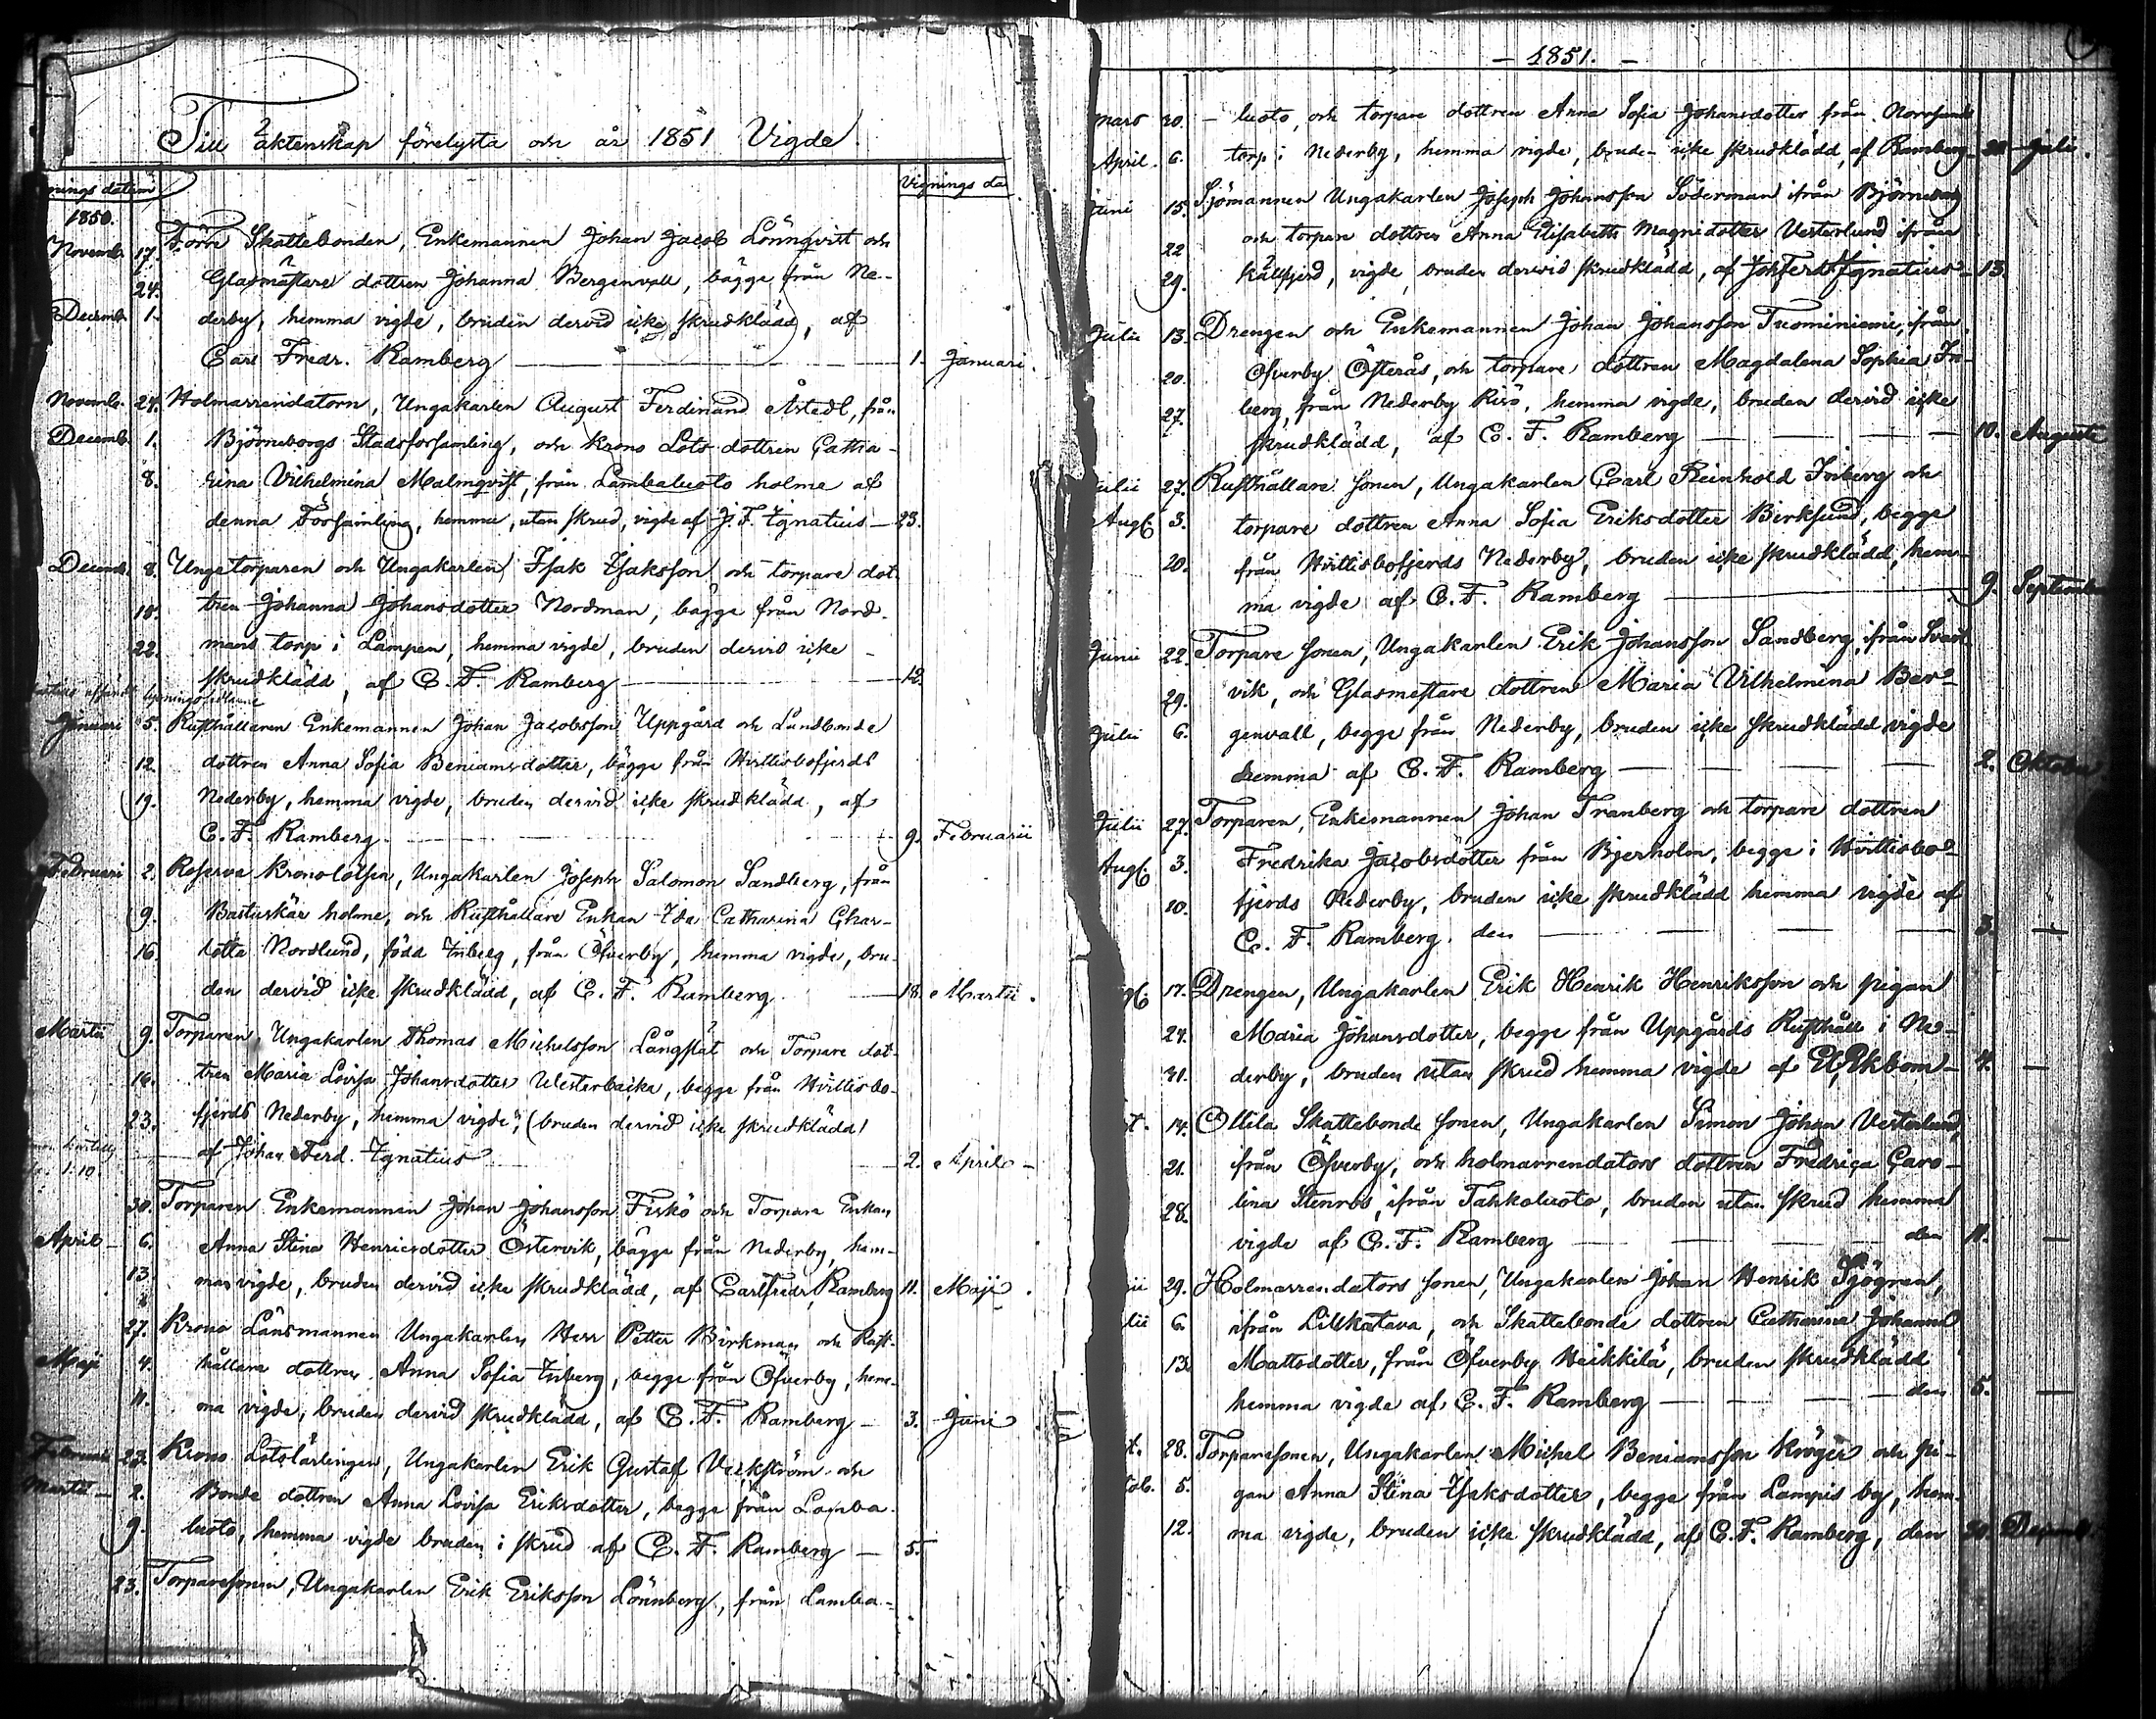 Till äktenskap förelysta och år 1851 Vigde.
nings datum
Vignings da
1850.
Novemb. 17. Förre Skattebonden, Enkemannen Johan Jacob Lönnqvist och
24. Glasmästare dottren Johanna Bergenvall, bägge från Ne-
Decemb. 1. derby, hemma vigde, bruden dervid icke skrudklädd, af
Carl Fredr. Ramberg 1. Januari.
Novemb. 24. Holmarrendatorn, Ungakarlen August Ferdinand Åstedt, från
Decemb. 1. Björneborgs Stadsförsamling, och Krono Lots dottren Catha-
8. rina Vilhelmina Malmqvist, från Lambaluoto holme af
denna Församling, hemma, utan skrud, vigde af J. F. Ignatius 23.
Decemb. 8. Unge torparen och Ungakarlen Isak Isaksson och torpare dot-
15. tren Johanna Johansdotter Nordman, bägge från Nord-
22. mans torp i Lampen, hemma vigde, bruden dervid icke
skrudklädd, af C. F. Ramberg 12.
Januari 5. Rusthållaren Enkemannen Johan Jacobsson Uppgård och Lundbonde
12. dottren Anna Sofia Beniamsdotter, bägge från Hvittisbofjerds
19. Nederby, hemma vigde, bruden dervid icke skrudklädd, af
C. F. Ramberg 9. Februarii
Februari 2. Reserve Kronolotsen, Ungakarlen Joseph Salomon Sandberg, från
9. Bastuskär holme, och Rusthållare Enkan Ida Catharina Char-
16. lotta Nordlund, född Inberg, från Öfverby, hemma vigde, bru-
den dervid icke skrudklädd, af C. F. Ramberg 18. Martii.
Martii 9. Torparen, Ungakarlen Thomas Michelsson Långslät och Torpare dot-
16. tren Maria Lovisa Johansdotter Westerbacka, begge från Hvittisbo-
23. fjerds Nederby, hemma vigde, (bruden dervid icke skrudklädd)
af Johan Ferd. Ignatius 2. April
30. Torparen Enkemannen Johan Johansson Fiskö och Torpare Enkan
April 6. Anna Stina Henricsdotter Östervik, bägge från Nederby, hem-
13. ma vigde, bruden dervid icke skrudklädd, af Carl Fredr. Ramberg 11. Maji.
27. Krono Länsmannen Ungakarlen Herr Petter Birkman och Rust-
Maji 4. hållare dottren Anna Sofia Inberg, begge från Öfverby, hem-
11. ma vigde, bruden dervid skrudklädd, af C. F. Ramberg 3. Juni
Februari 23. Krono Lotslärlingen, Ungakarlen Erik Gustaf Vickström och
Martii 2. Bonde dottren Anna Lovisa Eriksdotter, begge från Lamba-
9. luoto, hemma vigde bruden i skrud af C. F. Ramberg 5.
23. Torparesonen, Ungakarlen Erik Eriksson Lönnberg, från Lamba-
- 1851. -
Mars 30. - luoto, och torpare dottren Anna Sofia Johansdotter från Norrsunds
April. 6. torp i Nederby, hemma vigde, bruden icke skrudklädd, af Ramberg Juli.
Juni 15. Sjömannen Ungakarlen Joseph Johansson Söderman ifrån Björneborg
22 och torpare dottren Anna Elisabeth Magnidotter Vesterlund ifrån
29. Källfjerd, vigde, bruden dervid skrudklädd, af Joh Ferd Ignatius 13.
Julii 13. Drengen och Enkemannen Johan Johansson Tuominiemi, ifrån
20. Öfverby Österås, och torpare dottren Magdalena Sophia In-
27. berg, från Nederby Risö, hemma vigde, bruden dervid icke
skrudklädd, af C. F. Ramberg 10. Augusti
Julii 27. Rusthållare sonen, Ungakarlen Carl Reinhold Inberg och
Augt. 3. torpare dottren Anna Sofia Eriksdotter Birksund, begge
20. från Hvittisbofjerds Nederby, bruden icke skrudklädd, hem-
ma vigde af C. F. Ramberg 9. September
Junii 22. Torpare sonen, Ungakarlen Erik Johansson Sandberg, ifrån Svart-
29. vik, och Glasmestare dottren Maria Vilhelmina Ber-
Julii 6. genvall, begge från Nederby, bruden icke skrudklädd vigde
hemma af C. F. Ramberg 2. Oktober
Julii 27. Torparen, Enkemannen Johan Tramberg och torpare dottren
Augt. 3. Fredrika Jacobsdotter från Bjerholm, begge i Hvittisbo-
10. fjerds Nederby, bruden icke skrudklädd hemma vigde af
C. F. Ramberg. den 3. —
17. Drengen, Ungakarlen Erik Henrik Henriksson och pigan
24. Maria Johansdotter, begge från Uppgårds Rusthåll i Ne-
31. derby, bruden utan skrud hemma vigde af Ekbom 4. —
14. Ollila Skattebonde sonen, Ungakarlen Simon Johan Vesterlund,
21. ifrån Öfverby, och holmarrendators dottren Fredrica Caro-
28. lina Stenros, ifrån Tahkoluoto, bruden utan skrud hemma
vigde af C. F. Ramberg den 11. —
29. Holmarrendators sonen, Ungakarlen Johan Henrik Sjögren,
6. ifrån Lillkatava, och Skattebonde dottren Catharina Johanna
13. Mattsdotter, från Öfverby Heikkilä, bruden skrudklädd
hemma vigde af C. F. Ramberg den 5. —
28. Torparesonen, Ungakarlen Michel Beniamsson Kröger och pi-
5. gan Anna Stina Isaksdotter, begge från Lampis by, hem-
12. ma vigde, bruden icke skrudklädd, af C. F. Ramberg, den 30. Decemb.